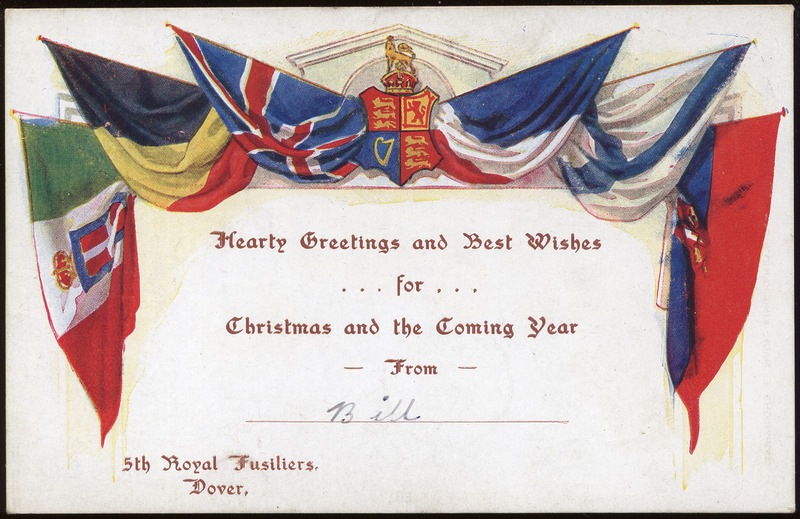 Hearty Greetings and Best Wishes
. . . for . . .
Christmas and the Coming Year
— From —
Bill
5th Royal Fusiliers.
Dover.